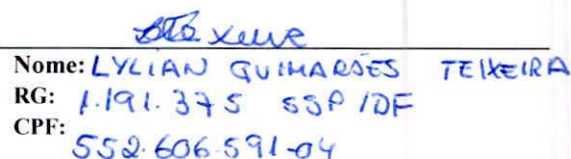 Nome: LYLIAN GUIMARÃES TEIXEIRA
RG: 1.191.375 SSP/DF
CPF:
552.606.591-04